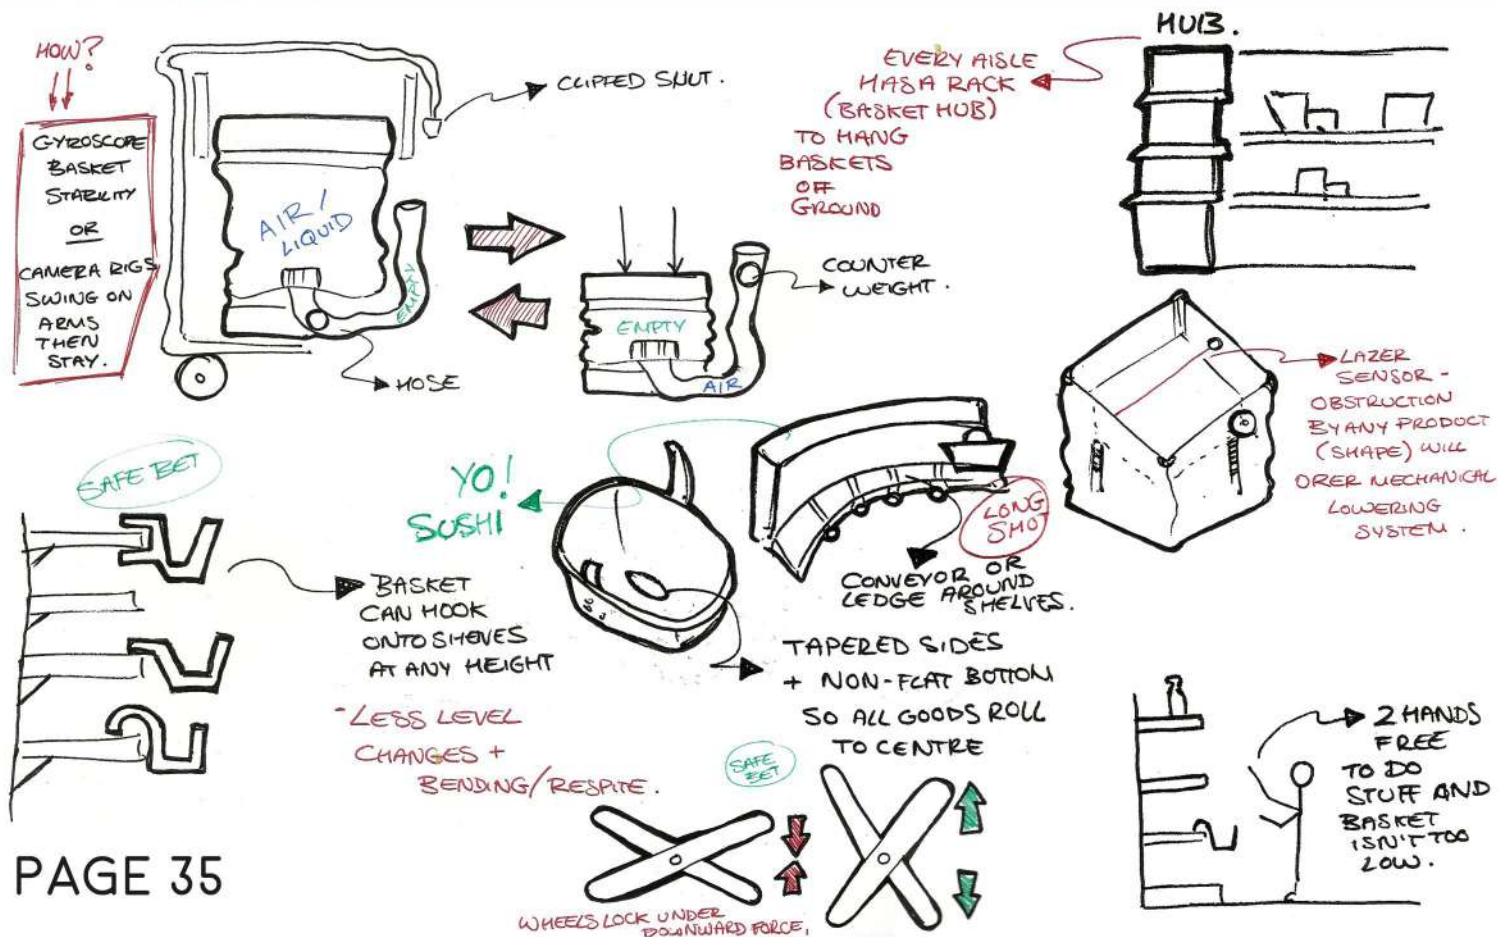 HOW?
GYROSCOPE
BASKET
STABILITY
OR
CAMERA RIGS
SWING ON
ARMS
THEN
STAY.
CLIPPED SHUT.
AIR /
LIQUID
EMPTY
HOSE
EMPTY
AIR
COUNTER
WEIGHT.
HUB.
EVERY AISLE
HAS A RACK
(BASKET HUB)
TO HANG
BASKETS
OFF
GROUND
LAZER
SENSOR -
OBSTRUCTION
BY ANY PRODUCT
(SHAPE) WILL
ORER MECHANICAL
LOWERING
SYSTEM.
SAFE BET
BASKET
CAN HOOK
ONTO SHEVES
AT ANY HEIGHT
- LESS LEVEL
CHANGES +
BENDING/RESPITE.
YO!
SUSHI
LONG
SHO
CONVEYOR OR
LEDGE AROUND
SHELVES.
TAPERED SIDES
+ NON-FLAT BOTTOM
SO ALL GOODS ROLL
TO CENTRE
SAFE
BET
WHEELS LOCK UNDER
DOWNWARD FORCE,
2 HANDS
FREE
TO DO
STUFF AND
BASKET
ISN'T TOO
LOW.
PAGE 35